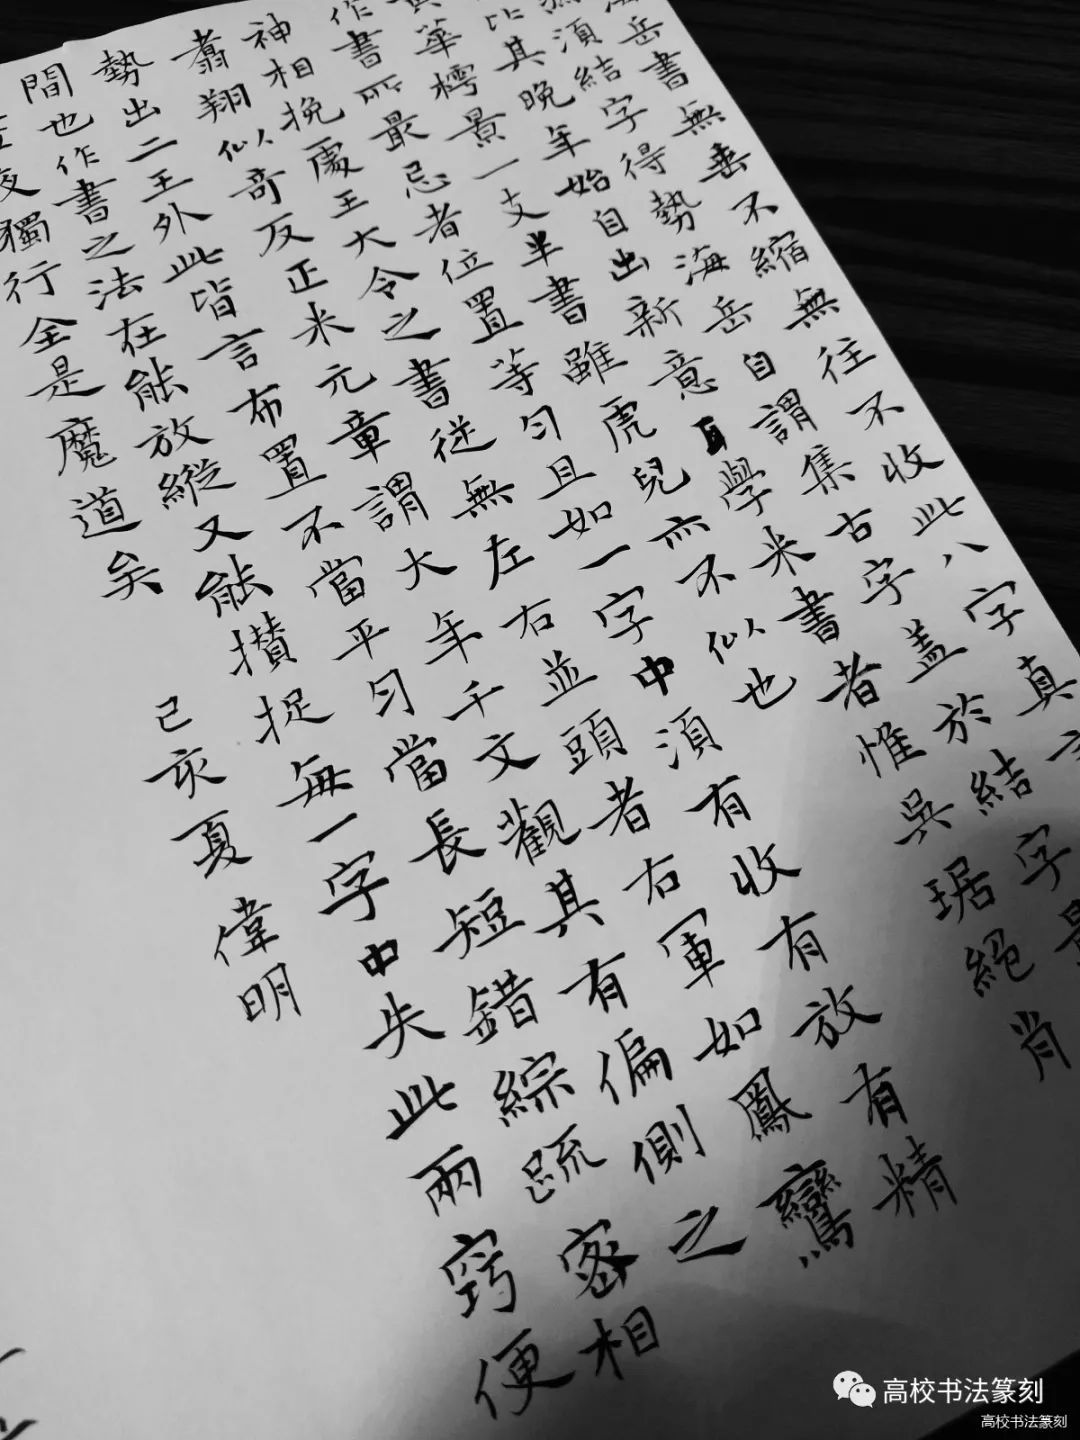 岳書無垂不縮無往不收此八字真
須結字得勢海岳自謂集古字盖於結字
比其晚年始自出新意耳學米書者惟吳琚絕肖
華樗景一支半書雖虎兒亦不似也
作書所最忌者位置等匀且如一字中須有收有放有精
神相挽處王大令之書従無左右並頭者右軍如鳳鸞
翥翔似奇反正米元章謂大年千文觀其有偏側之
勢出二王外此皆言布置不當平匀當長短錯綜疏密相
間也作書之法在能放縱又能攢捉每一字中失此兩窍便
夜獨行全是魔道矣
己亥夏偉明
高校书法篆刻
高校书法篆刻